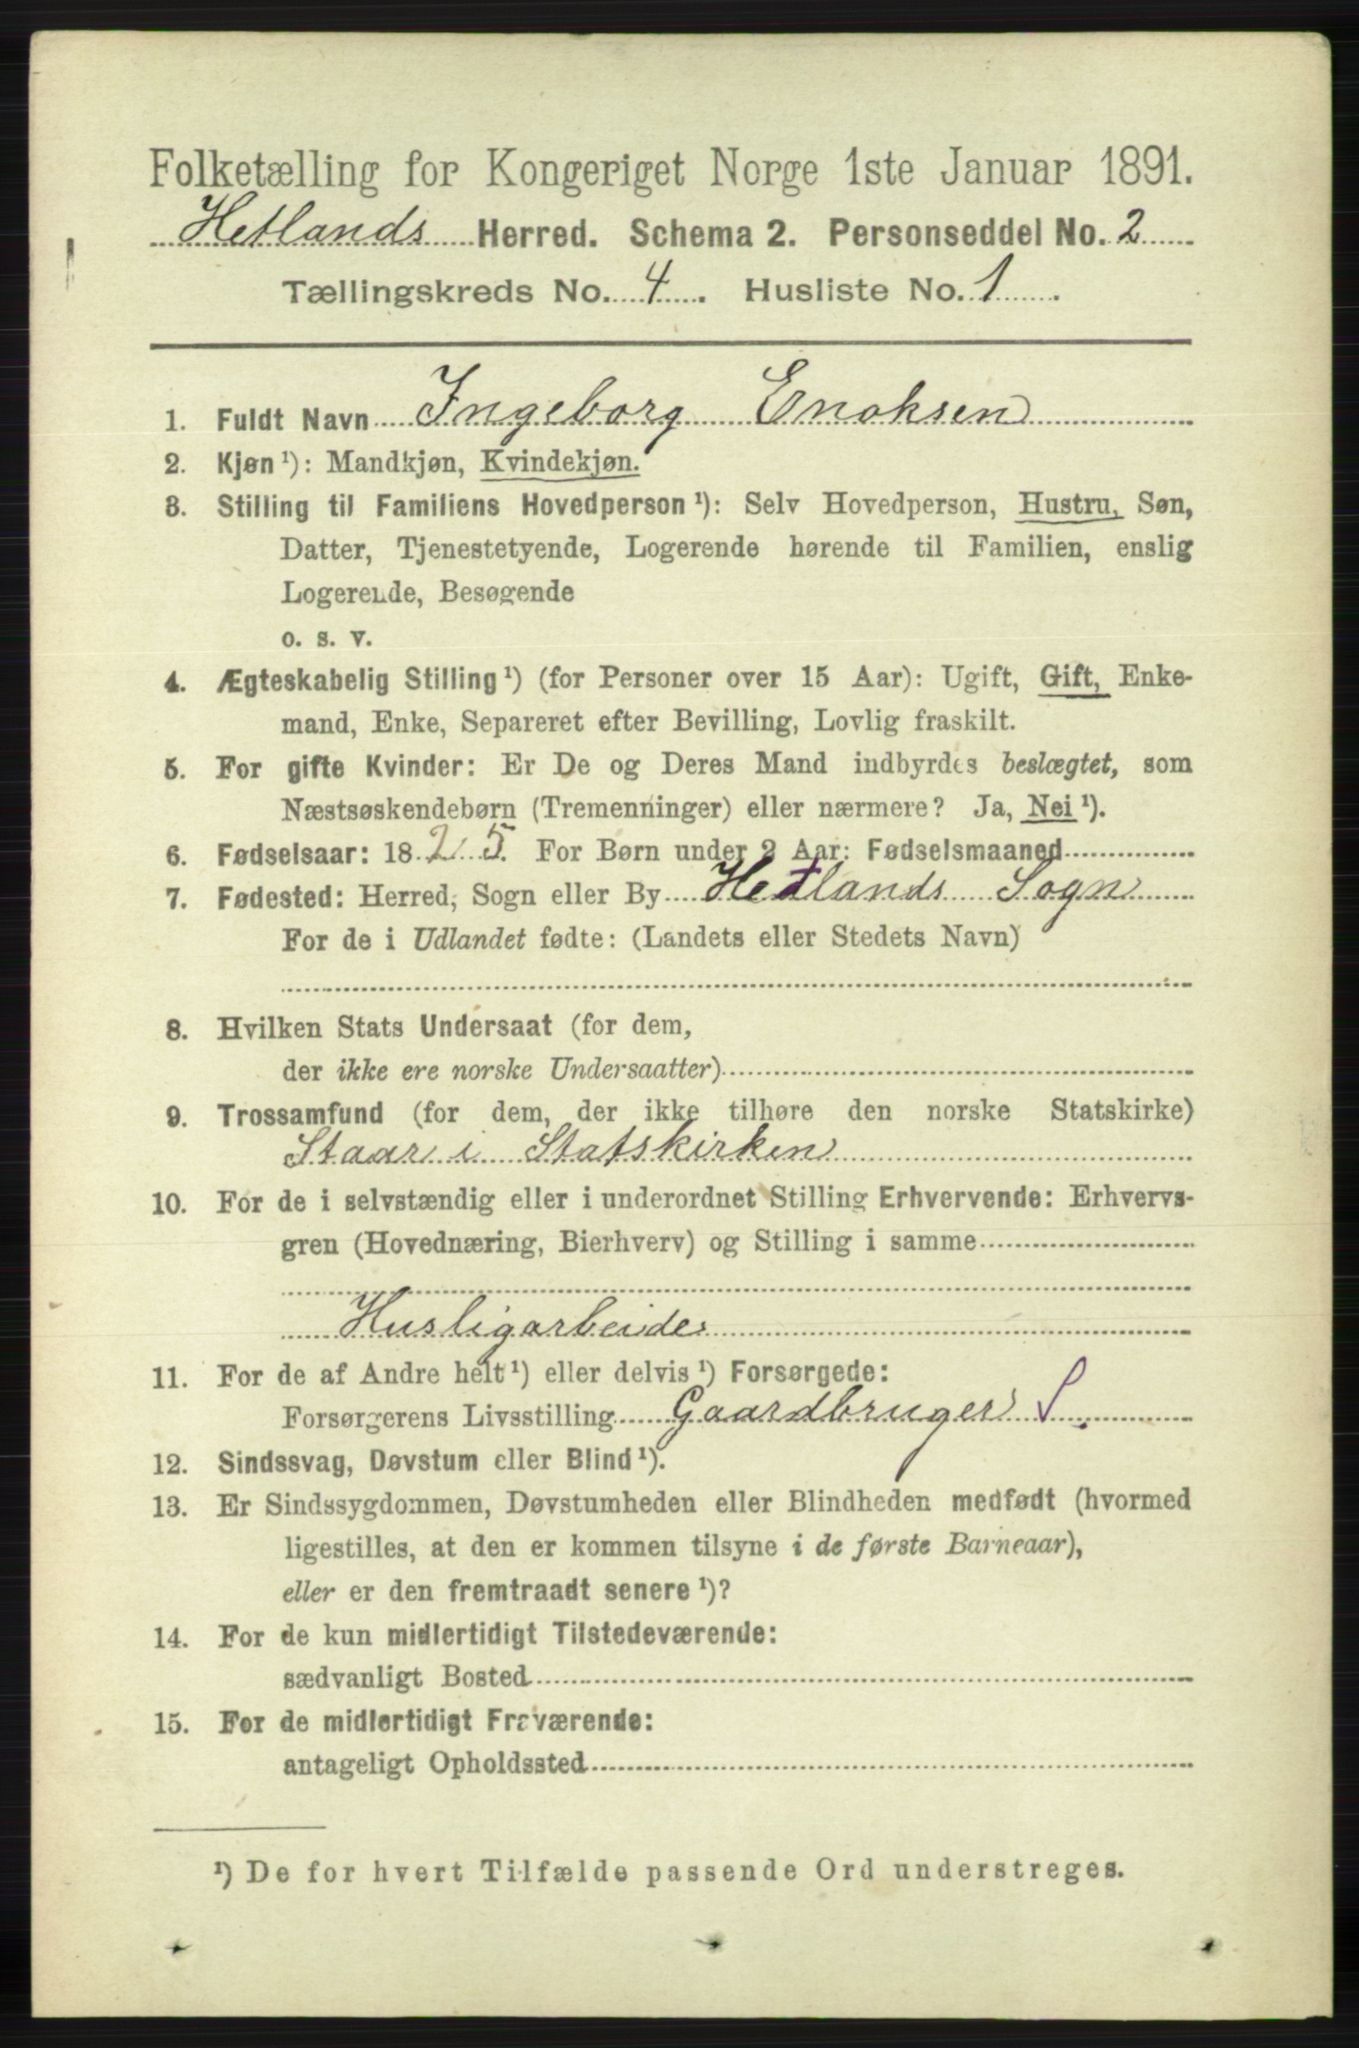 Folketælling for Kongeriget Norge 1ste Januar 1891.
Hetlands Herred. Schema 2. Personseddel No. 2
Tællingskreds No. 4. Husliste No. 1.
1. Fuldt Navn Ingeborg Enoksen
2. Kjøn ¹): Mandkjøn, Kvindekjøn.
3. Stilling til Familiens Hovedperson ¹): Selv Hovedperson, Hustru, Søn,
Datter, Tjenestetyende, Logerende hørende til Familien, enslig
Logerende, Besøgende
o. s. v.
4. Ægteskabelig Stilling ¹) (for Personer over 15 Aar): Ugift, Gift, Enke-
mand, Enke, Separeret efter Bevilling, Lovlig fraskilt.
5. For gifte Kvinder: Er De og Deres Mand indbyrdes beslægtet, som
Næstsøskendebørn (Tremenninger) eller nærmere? Ja, Nei ¹).
6. Fødselsaar: 1825. For Børn under 2 Aar: Fødselsmaaned
7. Fødested: Herred, Sogn eller By Hetlands Sogn
For de i Udlandet fødte: (Landets eller Stedets Navn)
8. Hvilken Stats Undersaat (for dem,
der ikke ere norske Undersaatter)
9. Trossamfund (for dem, der ikke tilhøre den norske Statskirke)
Staar i Statskirken
10. For de i selvstændig eller i underordnet Stilling Erhvervende: Erhvervs-
gren (Hovednæring, Bierhverv) og Stilling i samme
Husligarbeide
11. For de af Andre helt ¹) eller delvis ¹) Forsørgede:
Forsørgerens Livsstilling Gaardbruger S.
12. Sindssvag, Døvstum eller Blind ¹).
13. Er Sindssygdommen, Døvstumheden eller Blindheden medfødt (hvormed
ligestilles, at den er kommen tilsyne i de første Barneaar),
eller er den fremtraadt senere ¹)?
14. For de kun midlertidigt Tilstedeværende:
sædvanligt Bosted
15. For de midlertidigt Fraværende:
antageligt Opholdssted
¹) De for hvert Tilfælde passende Ord understreges.